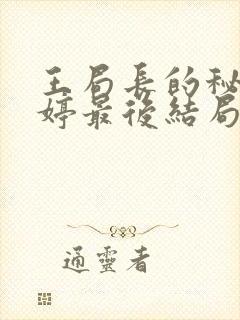 王局長的秘
婷最後結局
通靈者